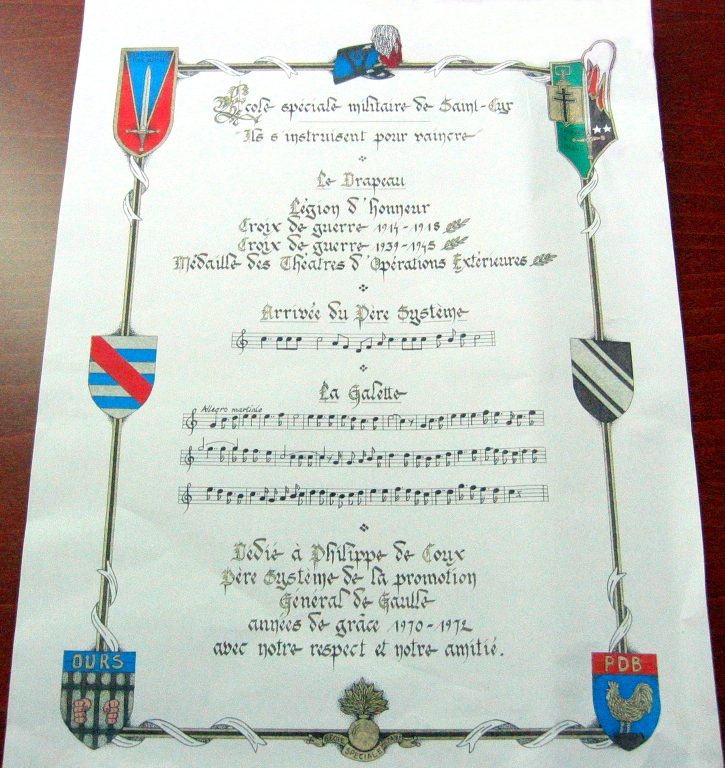 École spéciale militaire de Saint-Cyr
Ils s'instruisent pour vaincre
Le Drapeau
Légion d'honneur
Croix de guerre 1914-1918
Croix de guerre 1939-1945
Médaille des Théâtres d'Opérations Extérieures
Arrivée du Père Système
La Galette
Allegro martiale
Dédié à Philippe de Coux
Père Système de la promotion
Général de Gaulle
années de grâce 1970-1972
avec notre respect et notre amitié.
OURS
PDB
SPECIALE